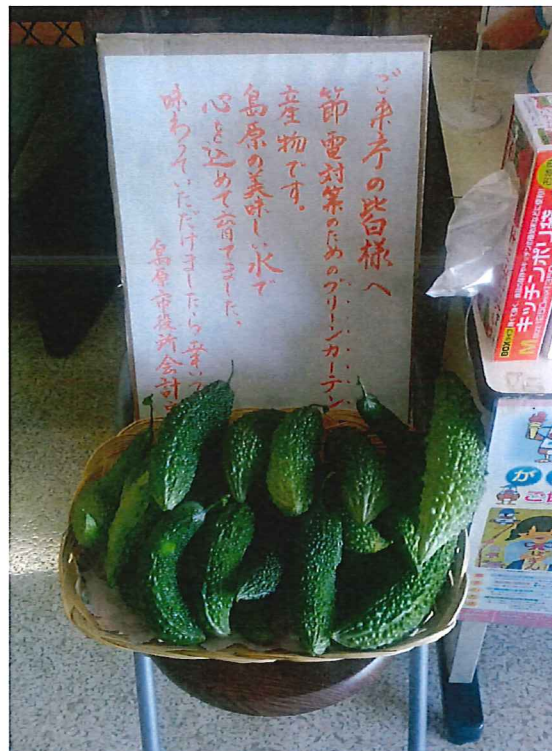 ご来庁の皆様へ
節電対策のためのグリーンカーテン
産物です。
島原の美味しい水で
心を込めて育てました。
味わっていただけましたら幸いで
島原市役所会計
キッチンポリ袋
M